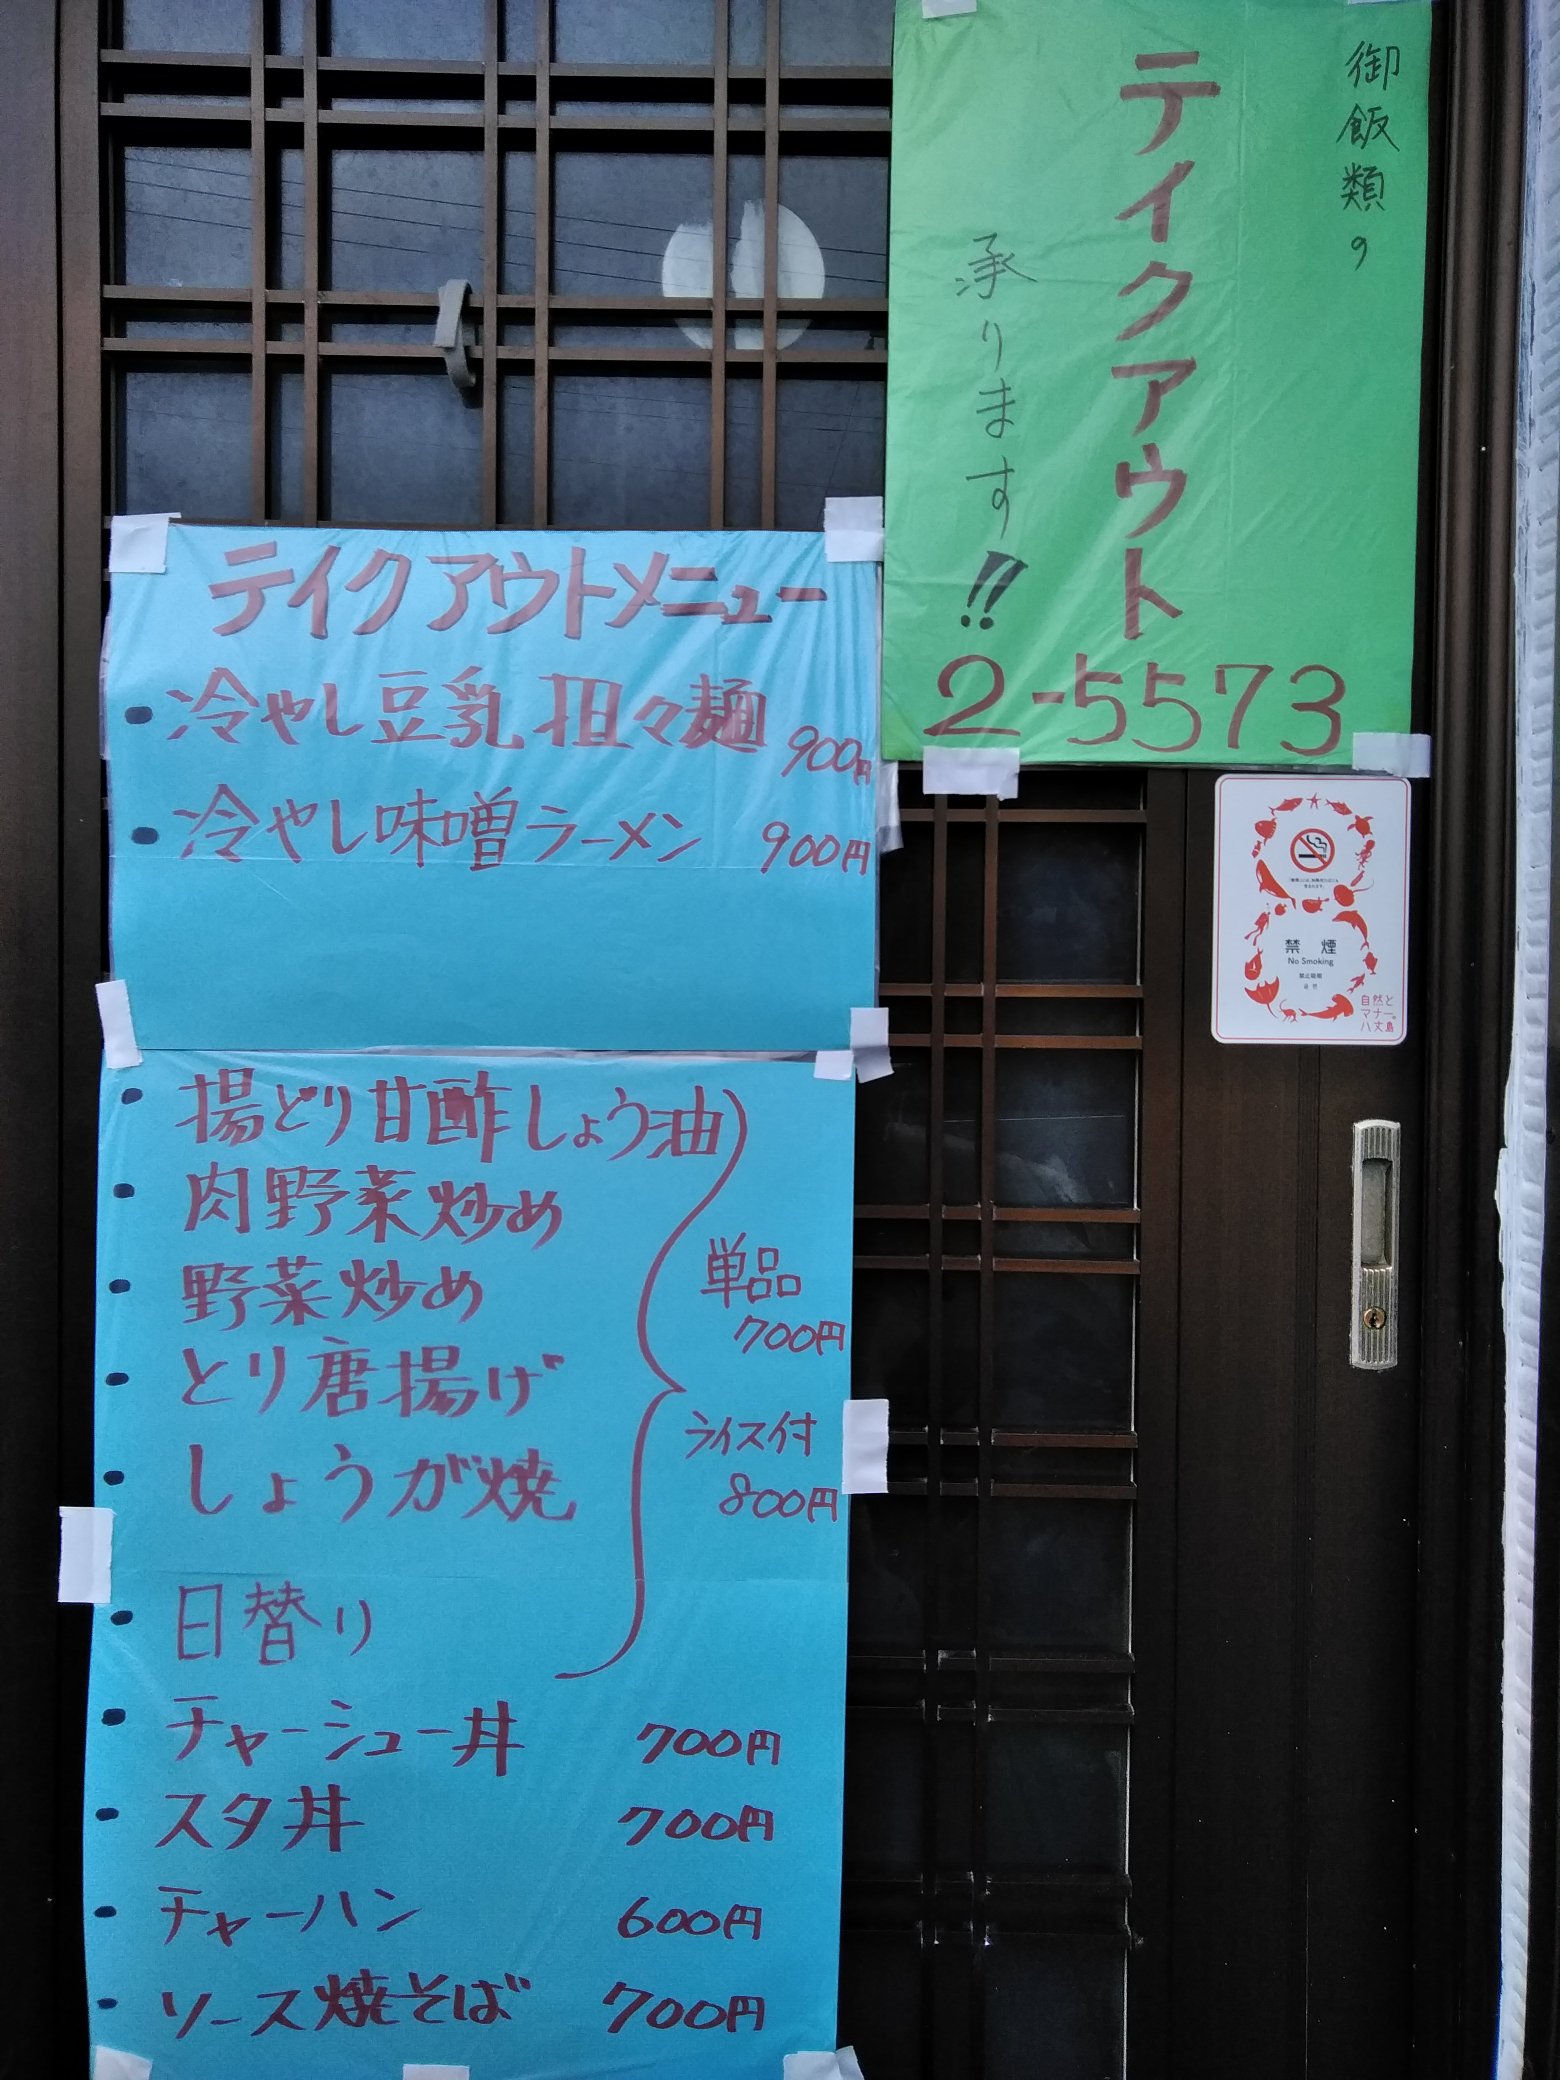 御飯類の
テイクアウト
承ります!!
2-5573
テイクアウトメニュー
・冷やし豆乳担々麺 900円
・冷やし味噌ラーメン 900円
・揚どり甘酢しょう油
・肉野菜炒め
・野菜炒め
・とり唐揚げ
・しょうが焼
・日替り
単品
700円
ライス付
800円
・チャーシュー丼 700円
・スタ丼 700円
・チャーハン 600円
・ソース焼そば 700円
禁煙
No Smoking
自然と
マナー。
八丈島